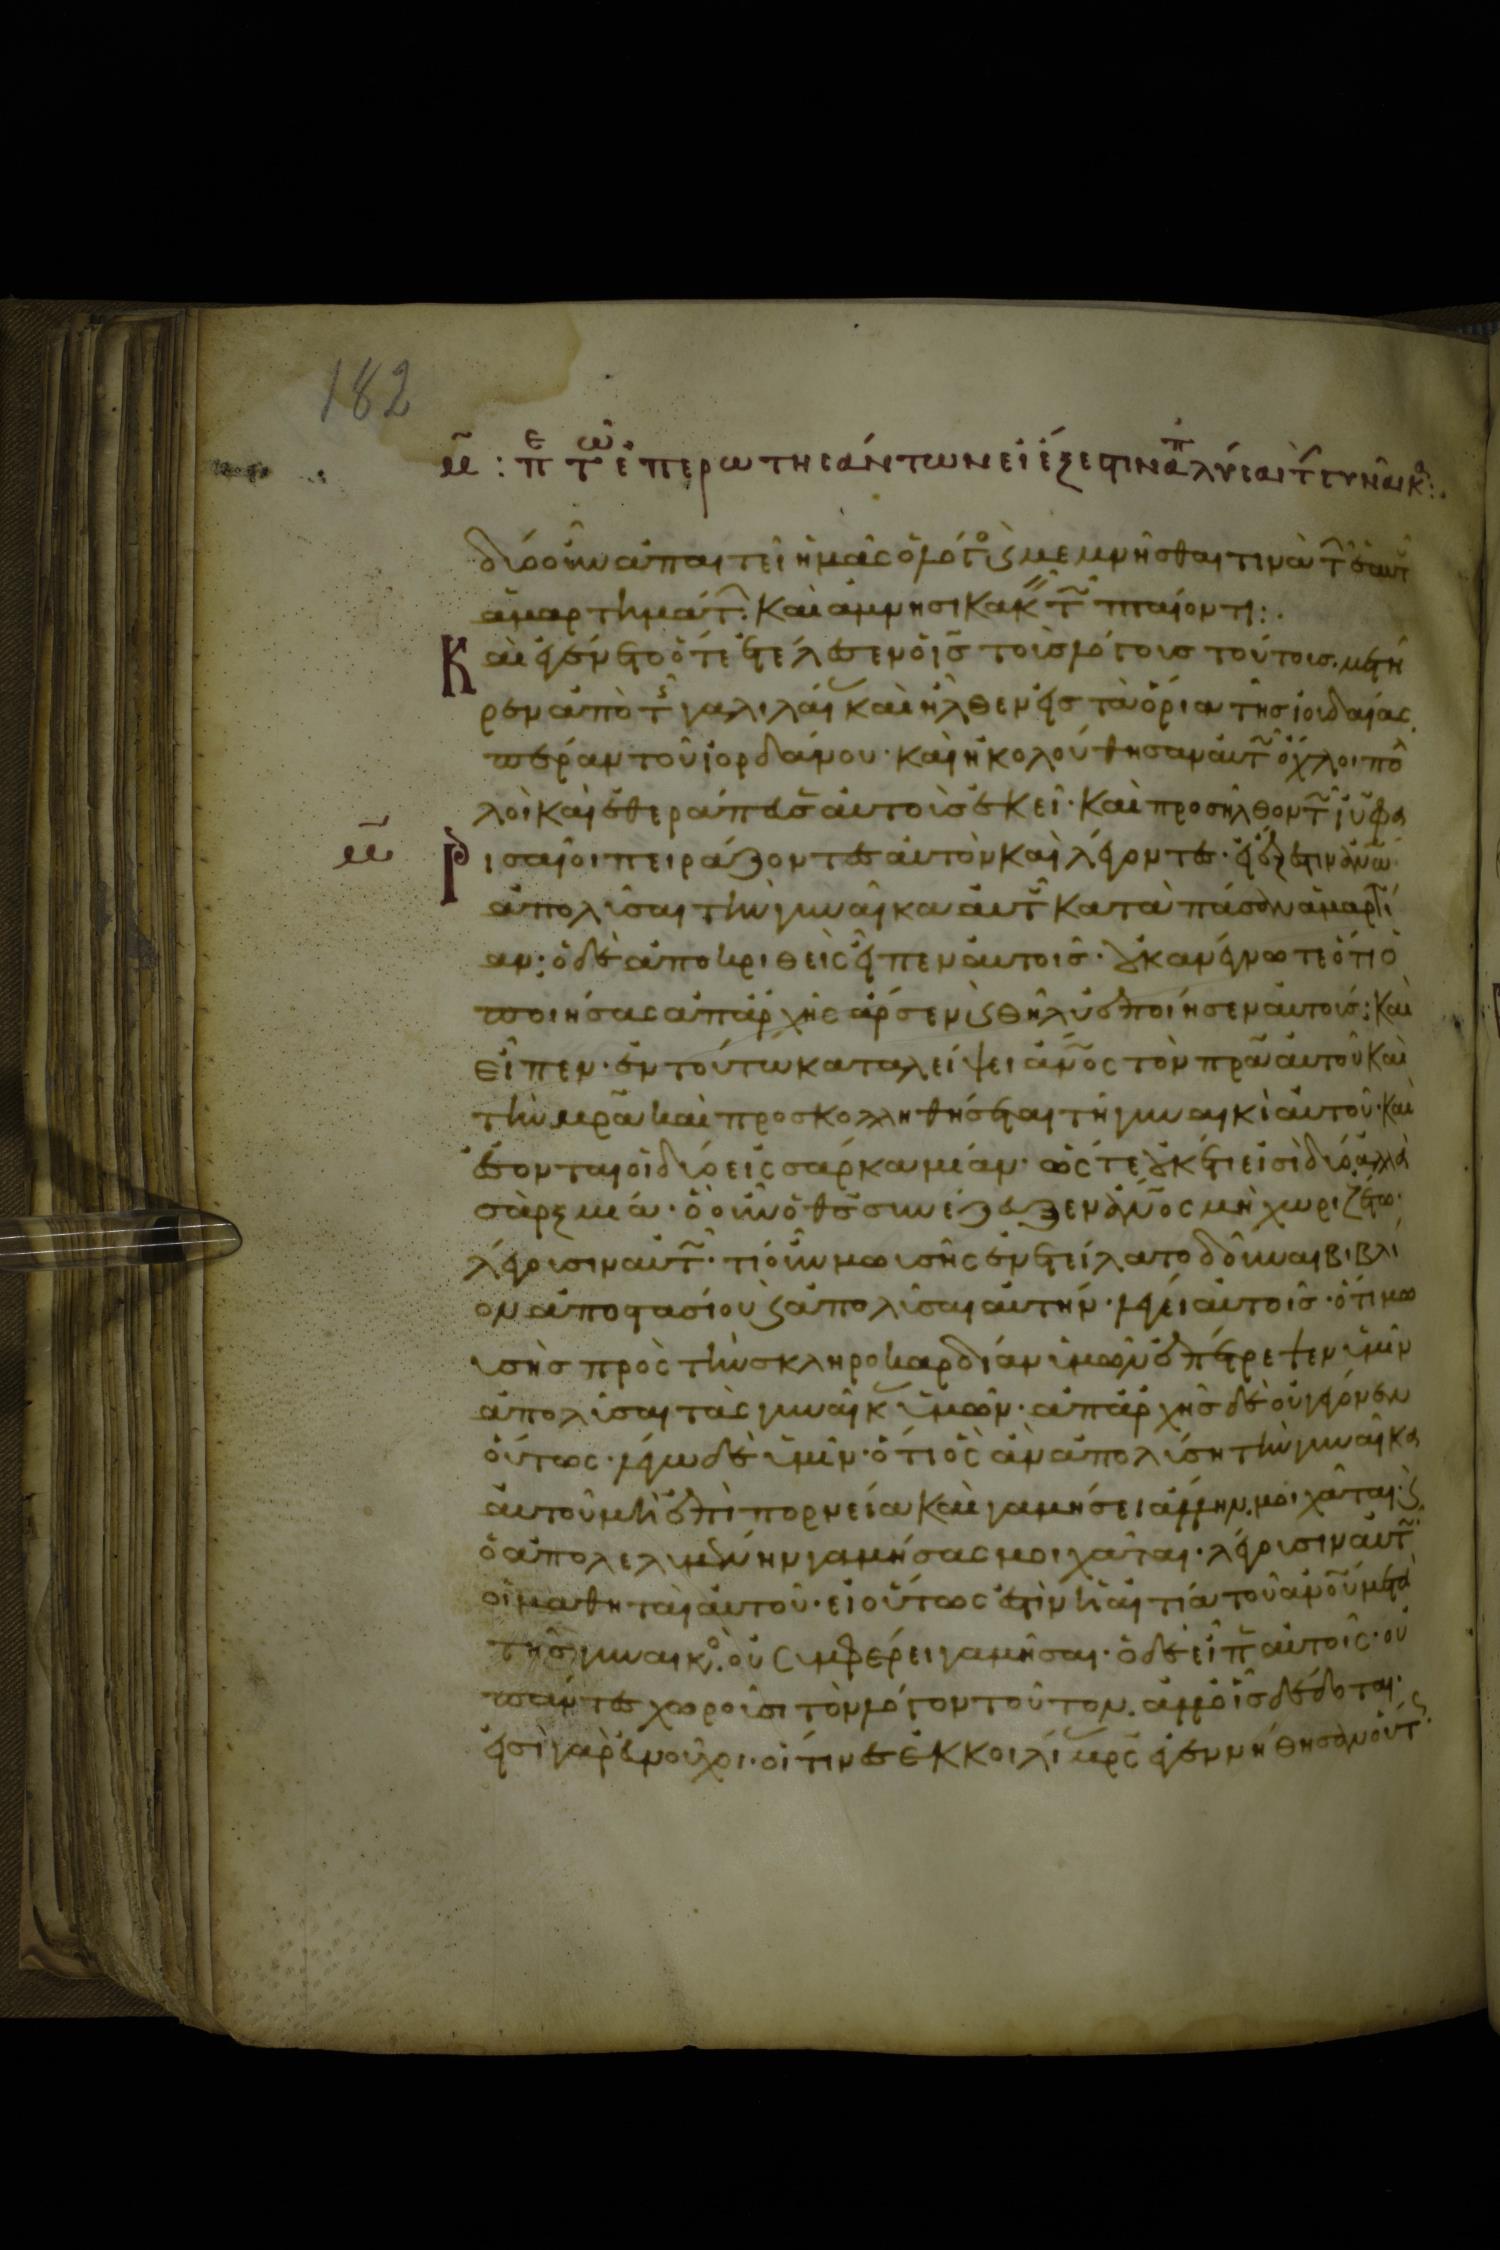 182
μ : πε τω επερωτησάντων εἰ ἔξεστιν ἀπολύσαι τ γυναικα :.
δύο οὖν ἀπαιτεῖ ἡμᾶς ὁ λόγος μεμνῆσθαί τινὰ τ ἑαυτ
ἁμαρτημάτ : καὶ ἀμνησικακ τ πταίοντι :.
Καὶ ἐγένετο ὅτε ἐτέλεσεν ὁ ις τοῖσ λόγοισ τούτοισ. μετῆ
ρεν ἀπὸ τ γαλιλαί καὶ ἦλθεν εἰσ τὰ ὅρια τῆσ ἰουδαίας
πέραν τοῦ ἰορδάνου · καὶ ἠκολούθησαν αυτ ὄχλοι πο
λοὶ καὶ ἐθεράπευσ αυτοὶσ ἐκεῖ · καὶ προσῆλθον τ ιυ φα
ρισαῖοι πειράζοντες αυτὸν καὶ λέγοντες · εἰ ἔξεστιν ἀνω
ἀπολῦσαι τὴν γυναῖκα αυτ κατὰ πάσαν ἁμαρτί
αν ; ὁ δὲ ἀποκριθεὶς εἶπεν αυτοῖσ · ουκ ανέγνωτε ὅτι ὁ
ποιήσας απαρχῆς άρσεν ϗ θῆλυ ἐποίησεν αυτοισ ; καὶ
εἶπεν · ἐν τούτω καταλείψει ανος τὸν πρα αυτοῦ καὶ
τὴν μρα καὶ προσκολληθήσεται τῆ γυναικὶ αυτοῦ · καὶ
ἔσονται οἱ δύο εἰς σάρκα μίαν · ὥστε ουκέτι εἰσὶ δύο αλλὰ
σὰρξ μιά · ὃ οὖν ὁ θς συνέζευξεν ανος μὴ χωριζέτω ·
λέγουσιν αυτ · τί οὖν μωυσῆς ἐνετείλατο δοῦναι βιβλί
ον ἀποστασίου ϗ ἀπολῦσαι αυτήν · λέγει αυτοῖσ · ὅτι μω
υσὴσ πρὸς τὴν σκληροκαρδίαν ὑμῶν ἐπέτρεψεν ὑμῖν
ἀπολύσαι τὰς γυναῖκ ὑμῶν · απαρχῆσ δὲ οὐ γέγονεν
ούτως · λέγω δὲ ὑμῖν · ὅτι ὃς ἀν ἀπολύση τὴν γυναῖκα
αυτοῦ μὴ ἐπὶ πορνεία καὶ γαμήσει άλλην. μοιχᾶται · ϗ
ὁ ἀπολελυμένην γαμήσας μοιχᾶται · λέγουσιν αυτ
οἱ μαθηταὶ αυτοῦ · εἰ ούτως ἐστὶν ἡ αἰτία τοῦ ανου μετὰ
τῆσ γυναικο. οὐ συμφέρει γαμῆσαι · ὁ δὲ εἶπ αυτοῖς · οὐ
πάντες χωροῦσι τὸν λόγον τοῦτον. αλλ οἷσ δέδοται ·
εἰσὶ γὰρ εὐνοῦχοι · οἵτινες ἐκ κοιλί μρς ἐγεννήθησαν ουτ